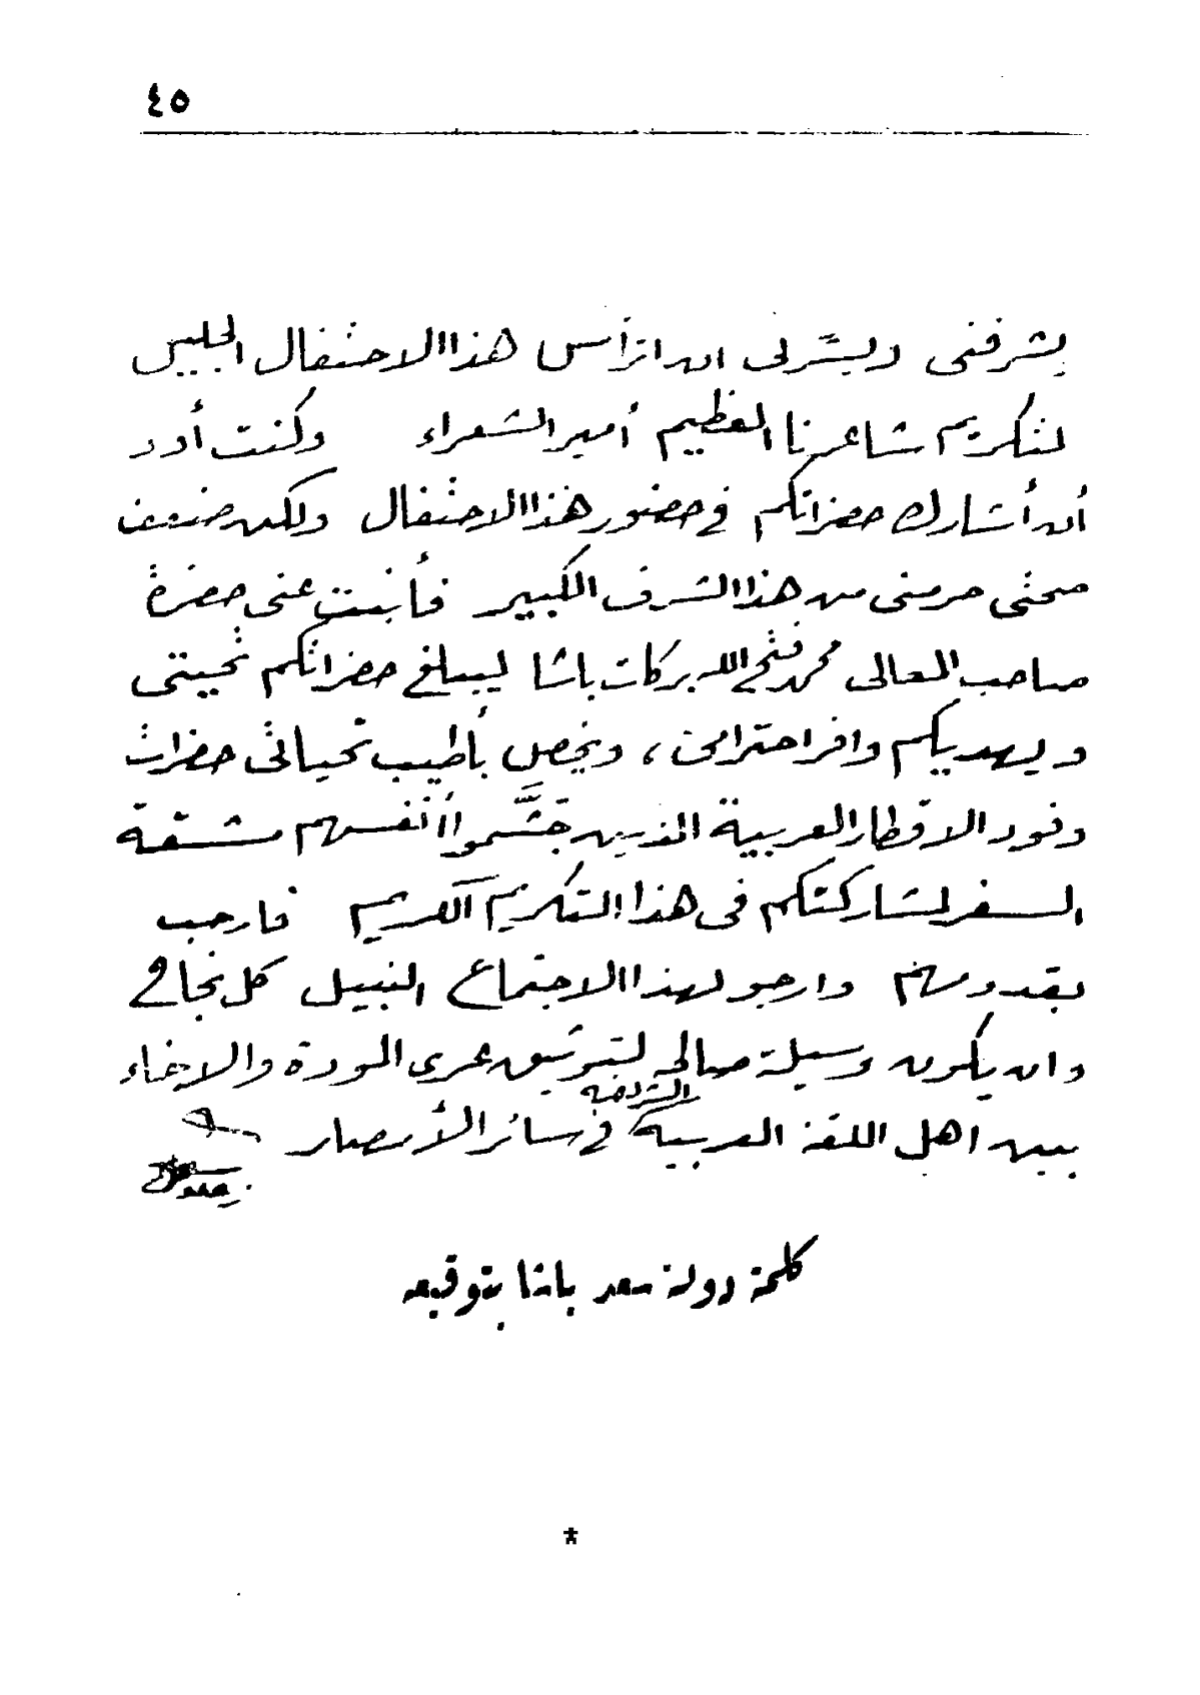 ٤٥
يشرفنى ويسرنى ان اترأس هذا الاحتفال الجليل
لتكريم شاعرنا العظيم أمير الشعراء وكنت أود
أن أشارك حضراتكم في حضور هذا الاحتفال ولكن ضعف
صحتى حرمنى من هذا الشرف الكبير فأنبت عنى حضرة
صاحب المعالى محمد فتح الله بركات باشا ليبلغ حضراتكم تحيتى
ويهديكم وافر احترامى ، ويخص بأطيب تحياتى حضرات
وفود الاقطار العربية الذين جشَّموا أنفسهم مشقة
السفر لمشاركتكم فى هذا التكريم الكريم فارحب
بقدومهم وارجو لهذا الاجتماع النبيل كل نجاح
وان يكون وسيلة صالحة لتوثيق عرى المودة والاخاء
بين اهل اللغة العربية الشريفة في سائر الأمصار
سعد زغلول
كلمة دولة سعد باشا بتوقيعه
*